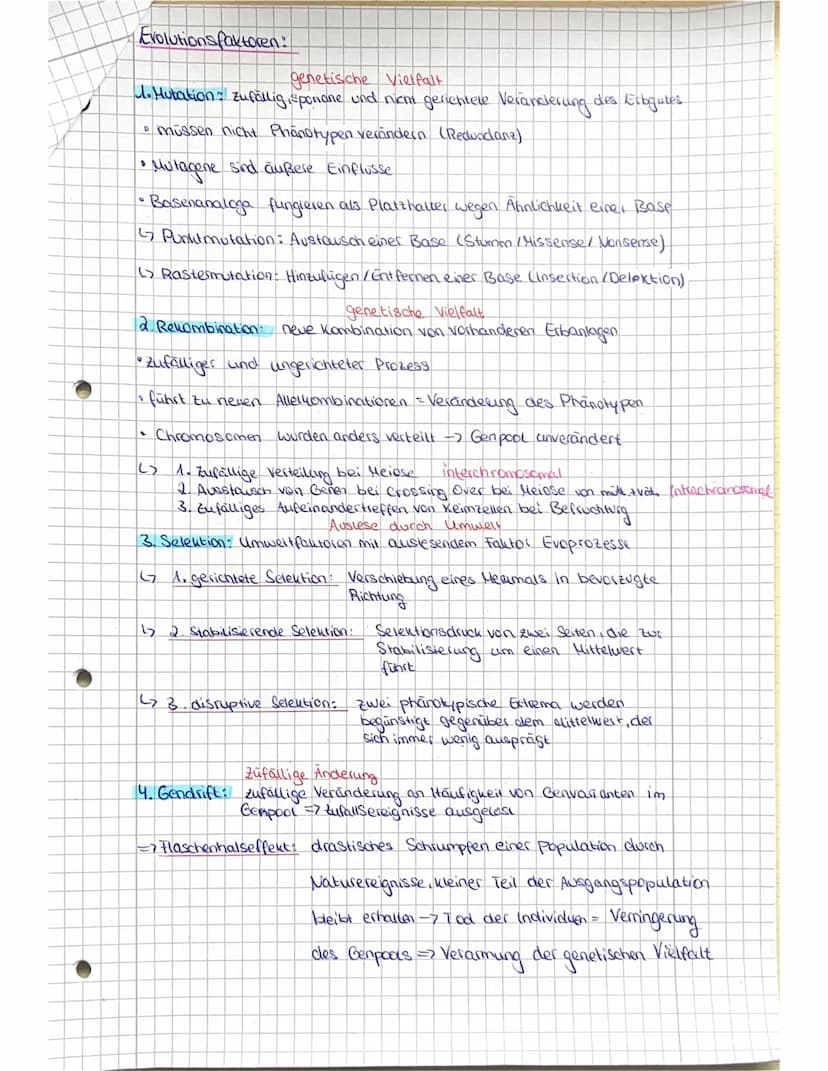 Evolutionsfaktoren:
genetische Vielfalt
1. Mutation: zufällig, sponane und nicht gerichtete Veränderung des Erbgutes
• müssen nicht Phänotypen verändern (Redundanz)
• Mutagene sind äußere Einflüsse
• Basenanaloga fungieren als Platzhalter wegen Ähnlichkeit einer Base
↳ Punktmutation: Austausch einer Base (Stumm / Missense / Nonsense)
↳ Rastermutation: Hinzufügen / Entfernen einer Base (Insertion / Delektion)
genetische Vielfalt
2. Rekombination: neue Kombination von vorhanderen Erbanlagen
• zufälliger und ungerichteter Prozess
• führt zu neuen Allelkombinationen = Veränderung des Phänotypen
• Chromosomen wurden anders verteilt -> Genpool unverändert
↳ 1. zufällige Verteilung bei Meiose interchromosomal
2. Ausstausch von Genen bei Crossing Over bei Meiose von mütt. + vät. Intrachromosomal
3. zufälliges Aufeinandertreffen von Keimzellen bei Befruchtung
Auslese durch Umwelt
3. Selektion: Umweltfaktoren mit auslesendem Faktor Evoprozesse
↳ 1. gerichtete Selektion: Verschiebung eines Merkmals in bevorzugte
Richtung
↳ 2. Stabilisierende Selektion: Selektionsdruck von zwei Seiten, die zur
Stabilisierung um einen Mittelwert
führt
↳ 3. disruptive Selektion: zwei phänotypische Extrema werden
begünstigt gegenüber dem Mittelwert, der
sich immer wenig ausprägt
zufällige Änderung
4. Gendrift: zufällige Veränderung an Häufigkeit von Genvarianten im
Genpool => Zufallsereignisse ausgelöst
=> Flaschenhalseffekt: drastisches Schrumpfen einer Population durch
Naturereignisse, kleiner Teil der Ausgangspopulation
bleibt erhalten -> Tod der Individuen = Verringerung
des Genpools => Verarmung der genetischen Vielfalt